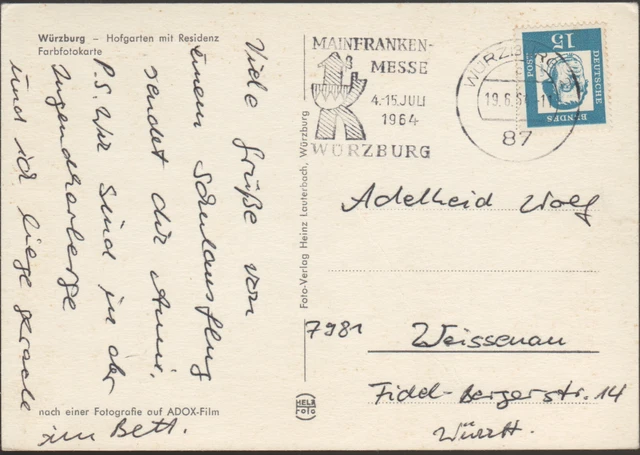 Würzburg – Hofgarten mit Residenz
Farbfotokarte
Viele Grüße von
einem Schulausflug
sendet dir Anni.
P.S. Wir sind in der
Jugendherberge
und ich liege gerade
im Bett.
nach einer Fotografie auf ADOX-Film
Foto-Verlag Heinz Lauterbach, Würzburg
HELA
FOTO
MAINFRANKEN-
MESSE
4.-15. JULI
1964
WÜRZBURG
WÜRZBURG
19.6.64
87
15
DEUTSCHE
BUNDES
POST
Adelheid Wolf
7981 Weissenau
Fidel-Bergerstr. 14
Württ.